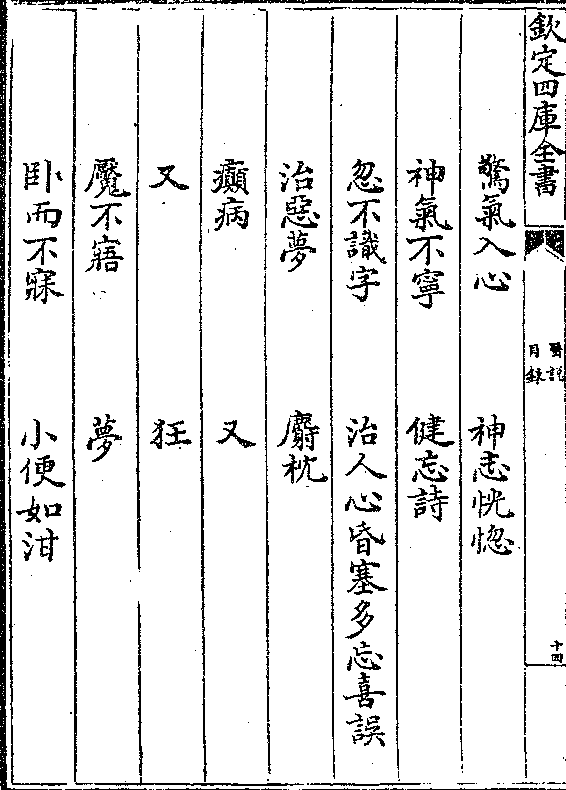 欽定四庫全書
醫說
目錄
十四
驚氣入心　神志恍惚
神氣不寧　健忘詩
忽不識字　治人心昏塞多忘喜誤
治惡夢　麝枕
癲病　又
又　狂
魘不寤　夢
卧而不寐　小便如泔